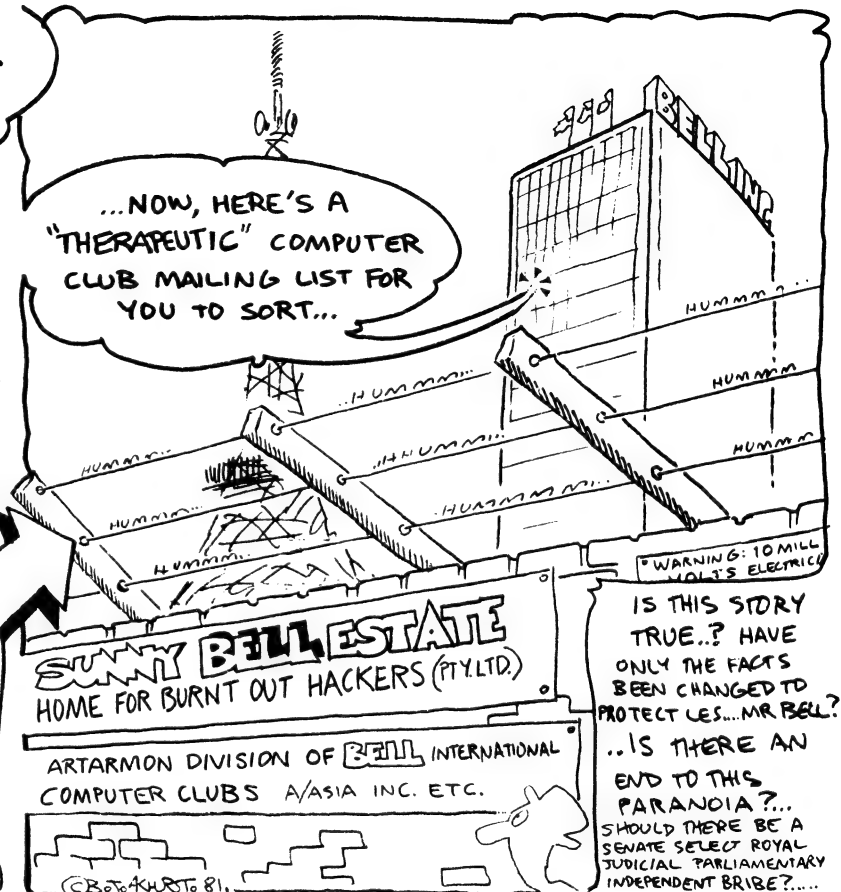 ...NOW, HERE'S A
"THERAPEUTIC" COMPUTER
CLUB MAILING LIST FOR
YOU TO SORT...
BELLING
HUMMM...
HUMMM
HUMMM
..HUMMM...
..HHUMMM...
HUMMMMMM...
HUMMM..
HUMMM...
HUMMM...
* WARNING: 10 MILL
VOLTS ELECTRIC
SUNNY BELL ESTATE
HOME FOR BURNT OUT HACKERS (PTY.LTD.)
ARTARMON DIVISION OF BELL INTERNATIONAL
COMPUTER CLUBS A/ASIA INC. ETC.
IS THIS STORY
TRUE..? HAVE
ONLY THE FACTS
BEEN CHANGED TO
PROTECT LES....MR BELL?
..IS THERE AN
END TO THIS
PARANOIA?...
SHOULD THERE BE A
SENATE SELECT ROYAL
JUDICIAL PARLIAMENTARY
INDEPENDENT BRIBE?.....
81.